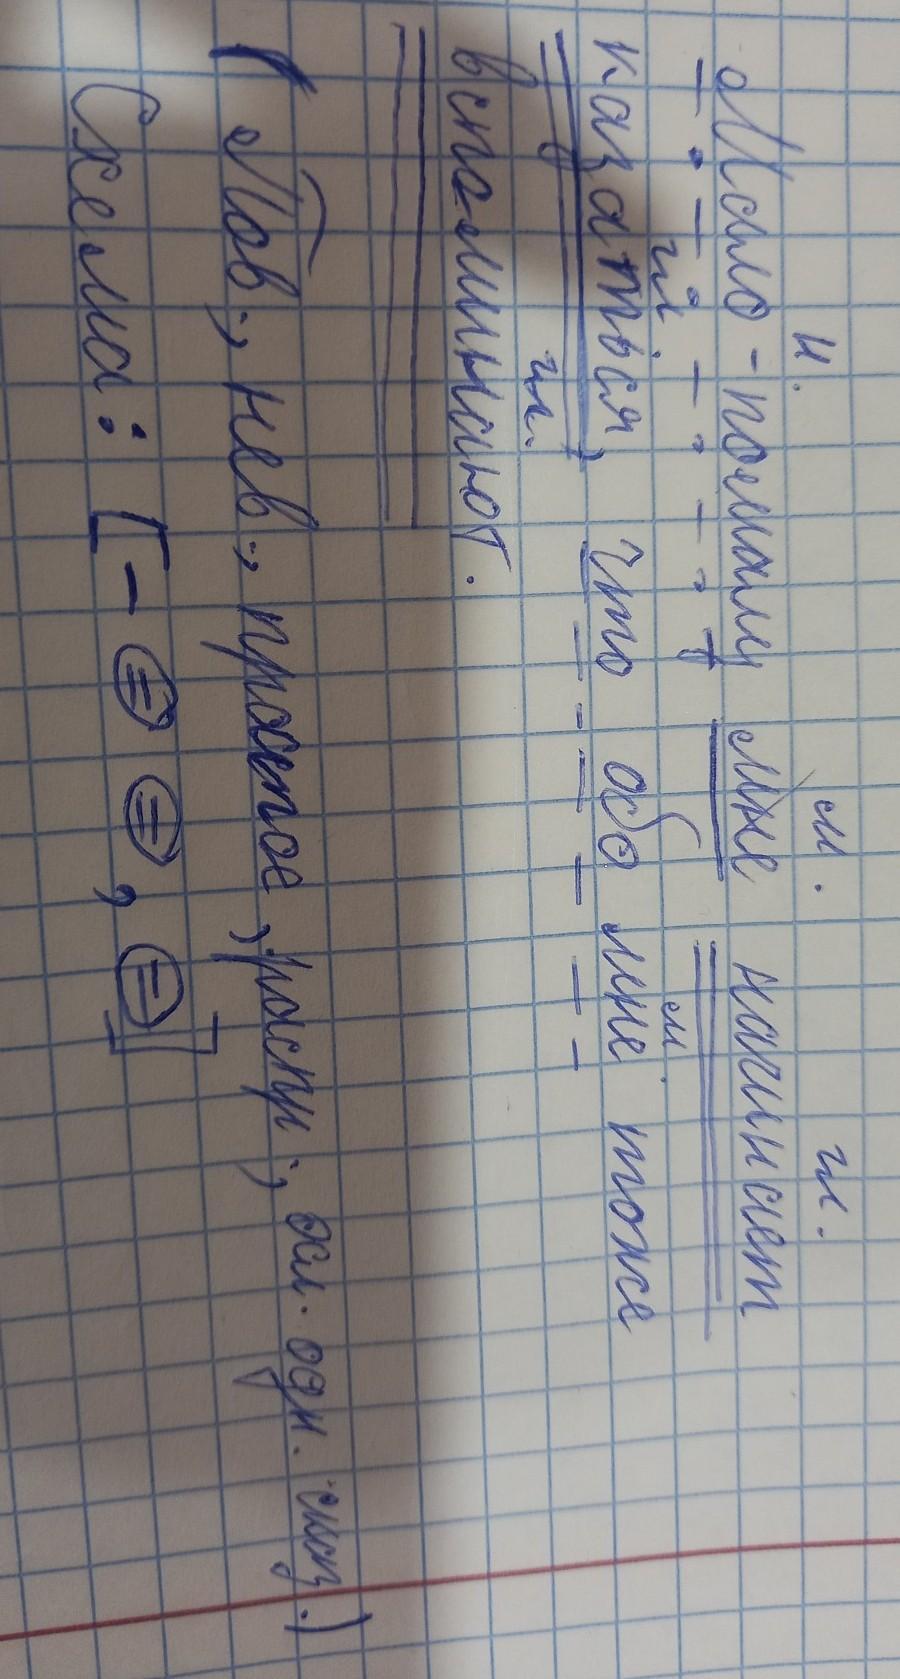 н. м. гл.
Мало-помалу мне начинает
гл. м.
казаться, что обо мне тоже
гл.
вспоминают.
(Пов., нев., простое, распр., осл. одн. сказ.)
Схема: [- = =, =]